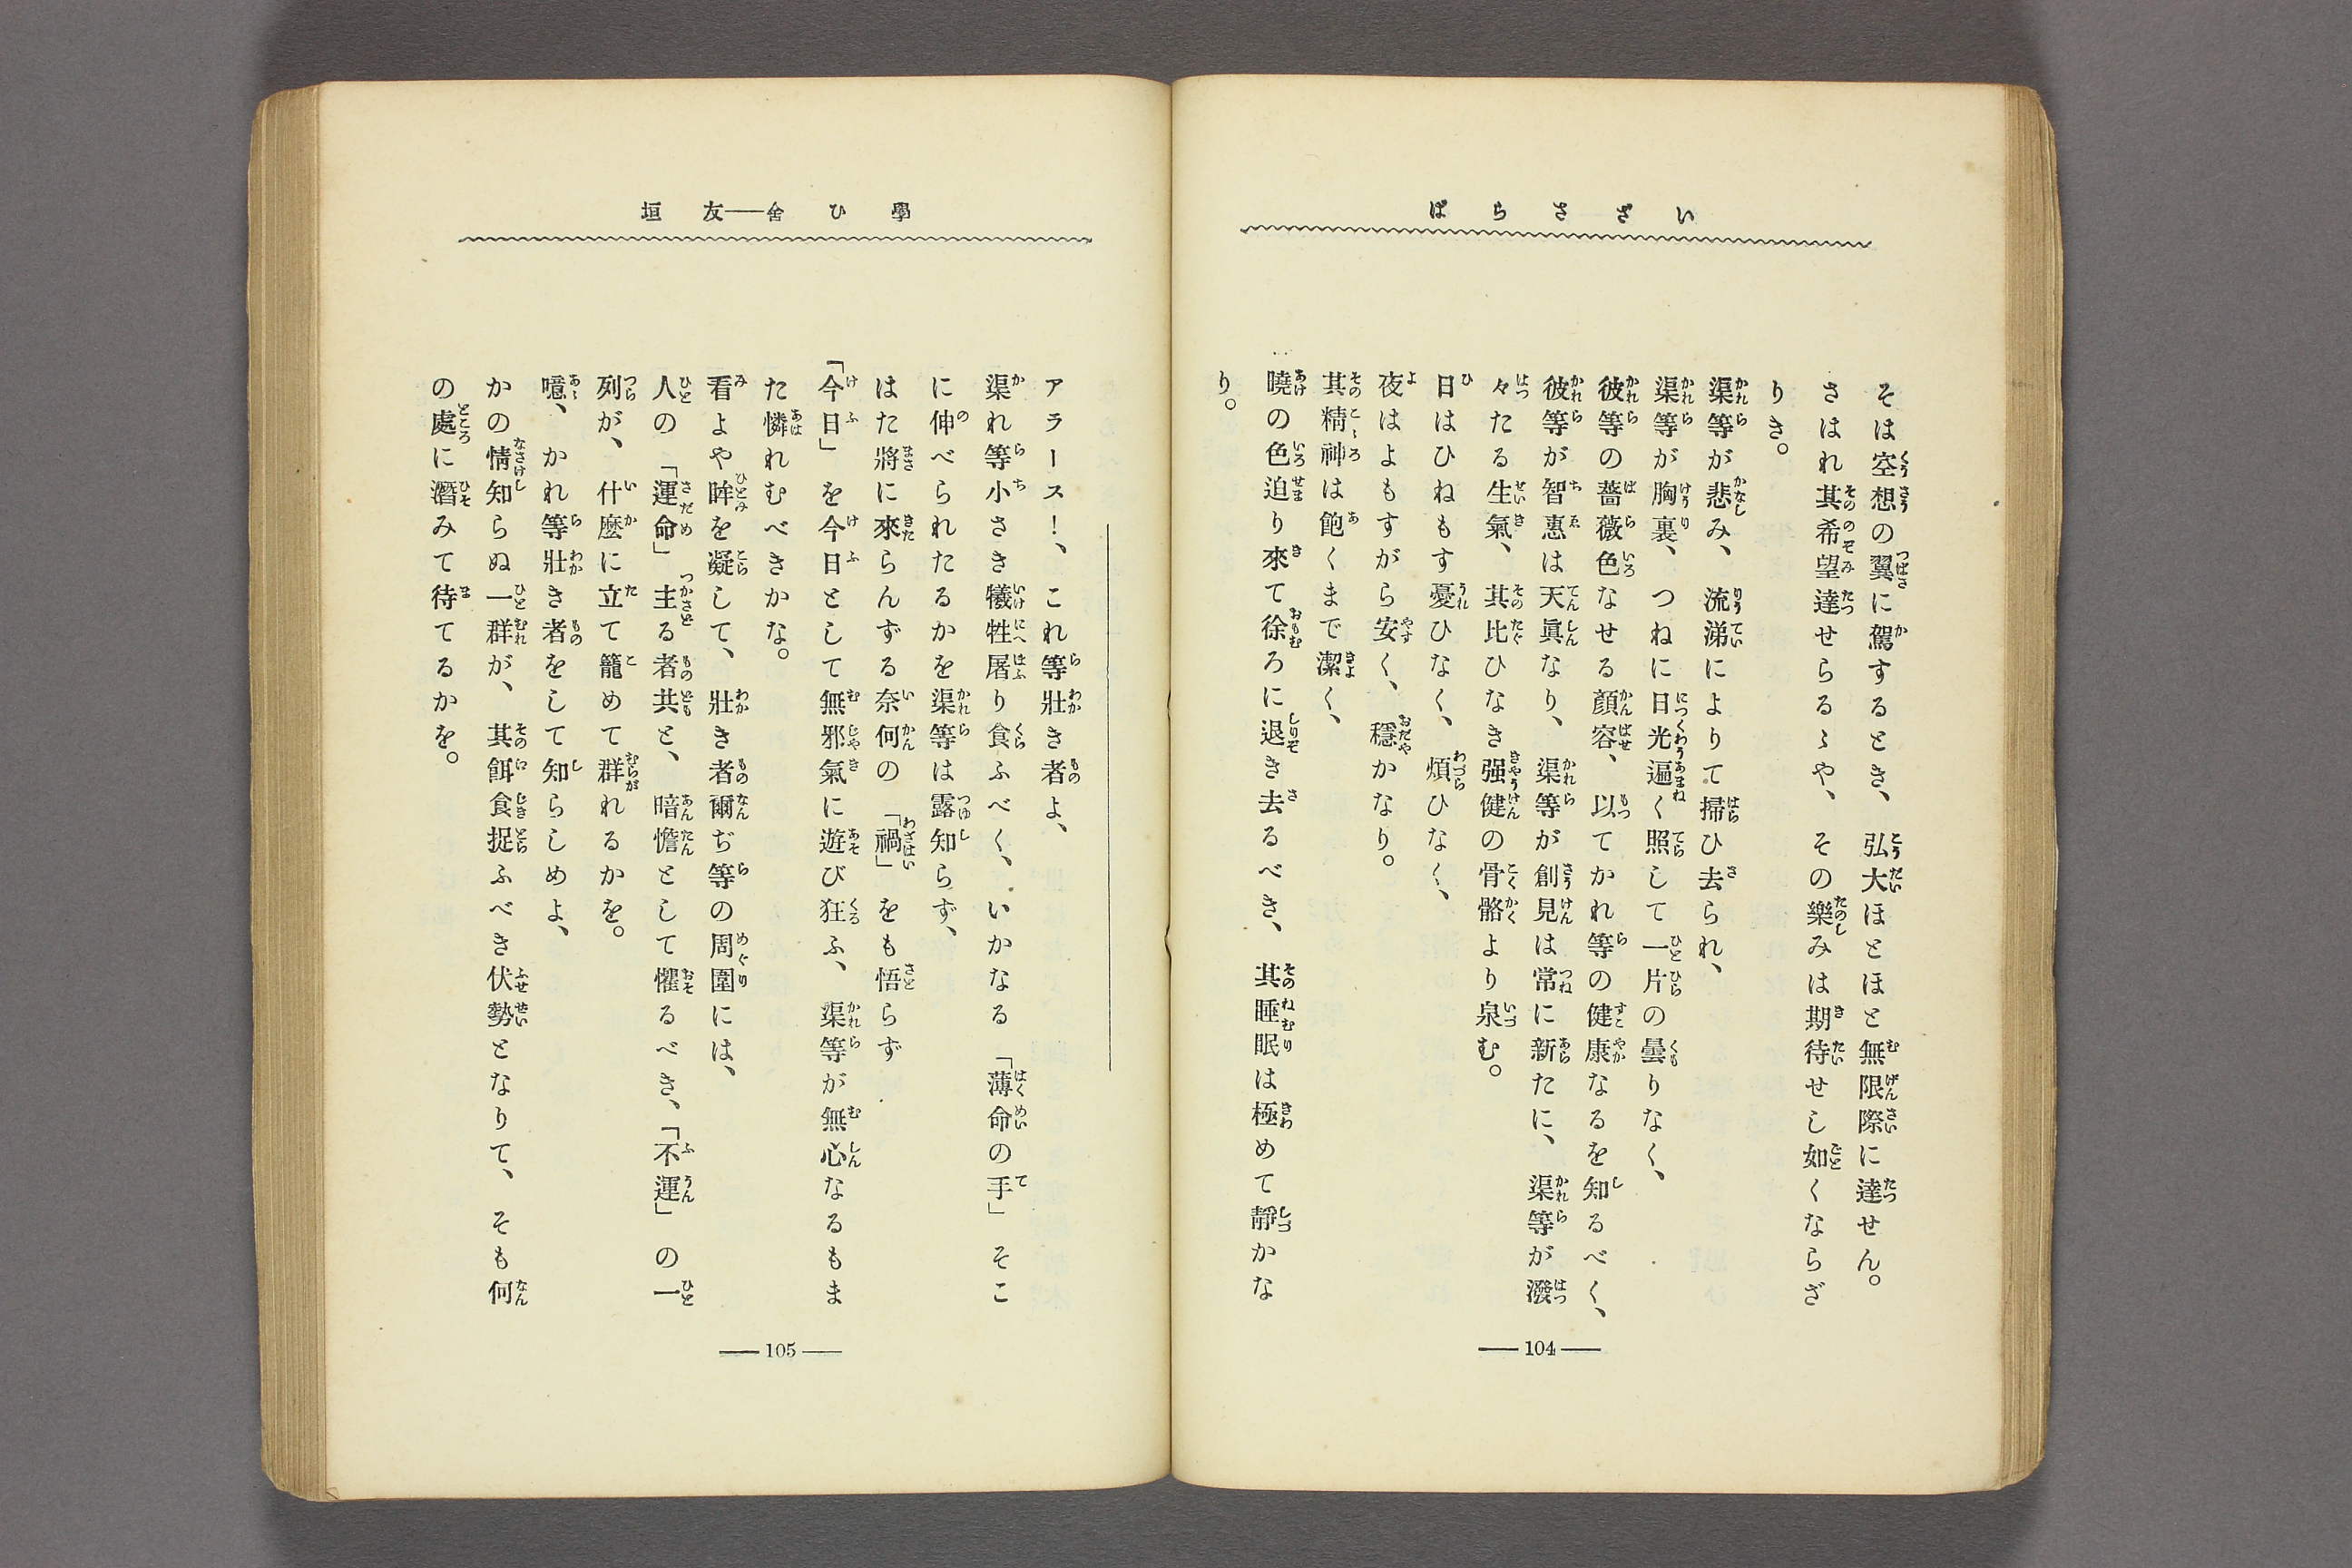 いざさらば
そは空想の翼に駕するとき、弘大ほとほと無限際に達せん。
さはれ其希望達せらるゝや、その樂みは期待せし如くならざ
りき。
渠等が悲み、流涕によりて掃ひ去られ、
渠等が胸裏、つねに日光遍く照して一片の曇りなく、
彼等の薔薇色なせる顏容、以てかれ等の健康なるを知るべく、
彼等が智惠は天眞なり、渠等が創見は常に新たに、渠等が潑
々たる生氣、其比ひなき强健の骨骼より泉む。
日はひねもす憂ひなく、煩ひなく、
夜はよもすがら安く、穩かなり。
其精神は飽くまで潔く、
曉の色迫り來て徐ろに退き去るべき、其睡眠は極めて靜かな
り。
104
學ひ舍──友垣
アラース！、これ等壯き者よ、
渠れ等小さき犧牲屠り食ふべく、いかなる「薄命の手」そこ
に伸べられたるかを渠等は露知らず、
はた將に來らんずる奈何の「禍」をも悟らず
「今日」を今日として無邪氣に遊び狂ふ、渠等が無心なるもま
た憐れむべきかな。
看よや眸を凝して、壯き者爾ぢ等の周圍には、
人の「運命」主る者共と、暗憺として懼るべき、「不運」の一
列が、什麼に立て籠めて群れるかを。
噫、かれ等壯き者をして知らしめよ、
かの情知らぬ一群が、其餌食捉ふべき伏勢となりて、そも何
の處に潛みて待てるかを。
105